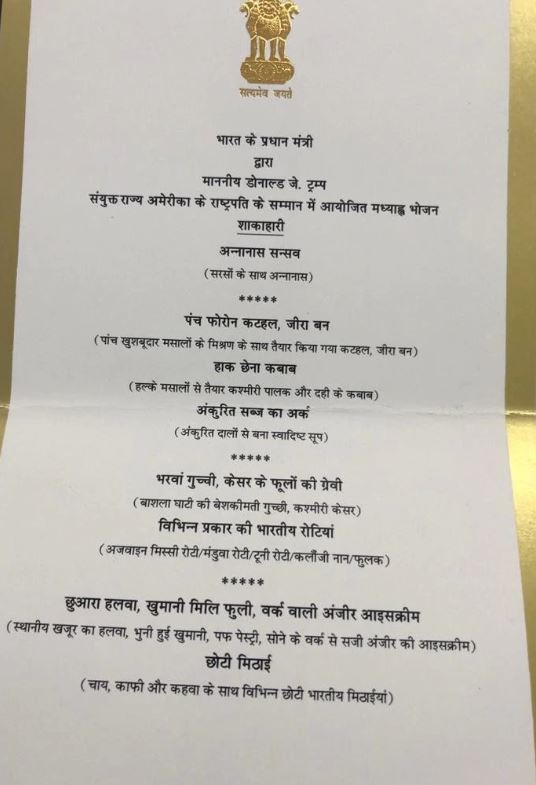 सत्यमेव जयते
भारत के प्रधान मंत्री
द्वारा
माननीय डोनाल्ड जे. ट्रम्प
संयुक्त राज्य अमेरिका के राष्ट्रपति के सम्मान में आयोजित मध्याह्न भोजन
शाकाहारी
अन्नानास सन्सव
(सरसों के साथ अन्नानास)
*****
पंच फोरोन कटहल, जीरा बन
(पांच खुशबूदार मसालों के मिश्रण के साथ तैयार किया गया कटहल, जीरा बन)
हाक छेना कबाब
(हल्के मसालों से तैयार कश्मीरी पालक और दही के कबाब)
अंकुरित सब्ज का अर्क
(अंकुरित दालों से बना स्वादिष्ट सूप)
*****
भरवां गुच्ची, केसर के फूलों की ग्रेवी
(बाशला घाटी की बेशकीमती गुच्छी, कश्मीरी केसर)
विभिन्न प्रकार की भारतीय रोटियां
(अजवाइन मिस्सी रोटी/मंडुवा रोटी/टूनी रोटी/कलौंजी नान/फुलक)
*****
छुआरा हलवा, खुमानी मिलि फुली, वर्क वाली अंजीर आइसक्रीम
(स्थानीय खजूर का हलवा, भुनी हुई खुमानी, पफ पेस्ट्री, सोने के वर्क से सजी अंजीर की आइसक्रीम)
छोटी मिठाई
(चाय, काफी और कहवा के साथ विभिन्न छोटी भारतीय मिठाईयां)